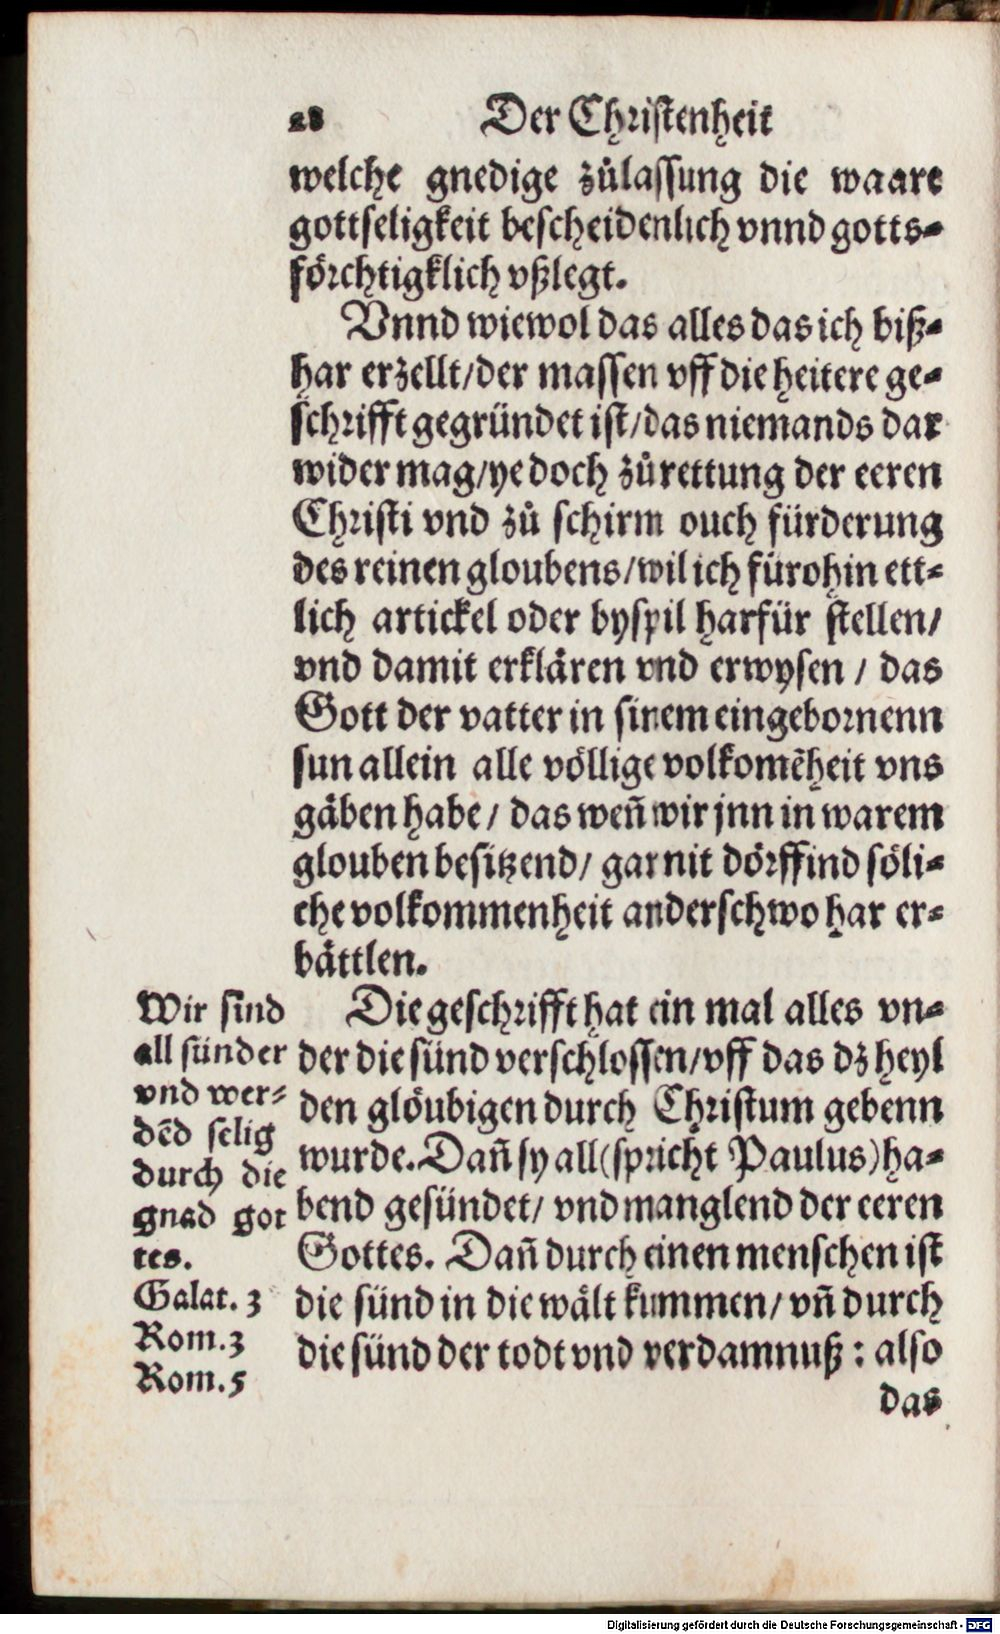 28 Der Christenheit
welche gnedige zůlassung die waare
gottseligkeit bescheidenlich vnnd gotts-
förchtigklich vßlegt.
Vnnd wiewol das alles das ich biß-
har erzellt/der massen vff die heitere ge-
schrifft gegründet ist/das niemands dar
wider mag/yedoch zů rettung der eeren
Christi vnd zů schirm ouch fürderung
des reinen gloubens/wil ich fürohin ett-
lich artickel oder byspil harfür stellen/
vnd damit erklären vnd erwysen / das
Gott der vatter in sinem eingebornenn
sun allein alle völlige volkomēheit vns
gäben habe / das weñ wir jnn in warem
glouben besitzend/ gar nit dörffind söli-
che volkommenheit anderschwo har er-
bättlen.
Die geschrifft hat ein mal alles vn-
der die sünd verschlossen/vff das dz heyl
den glöubigen durch Christum gebenn
wurde. Dañ sy all (spricht Paulus) ha-
bend gesündet/ vnd manglend der eeren
Gottes. Dañ durch einen menschen ist
die sünd in die wält kummen/ vñ durch
die sünd der todt vnd verdamnuß : also
das
Wir sind
all sünder
vnd wer-
dēd selig
durch die
gnad got
tes.
Galat. 3
Rom. 3
Rom. 5
Digitalisierung gefördert durch die Deutsche Forschungsgemeinschaft - DFG